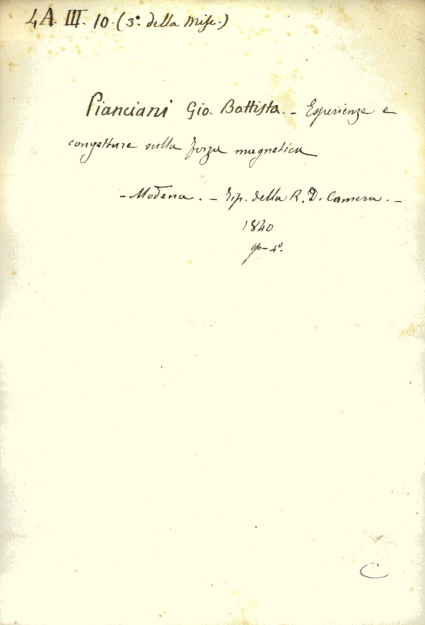 4A. III. 10. (3°. della Misc.)
Pianciani Gio. Battista. - Esperienze e
congetture sulla forza magnetica
- Modena. - Tip. della R. D. Camera. -
1840
4°.
C